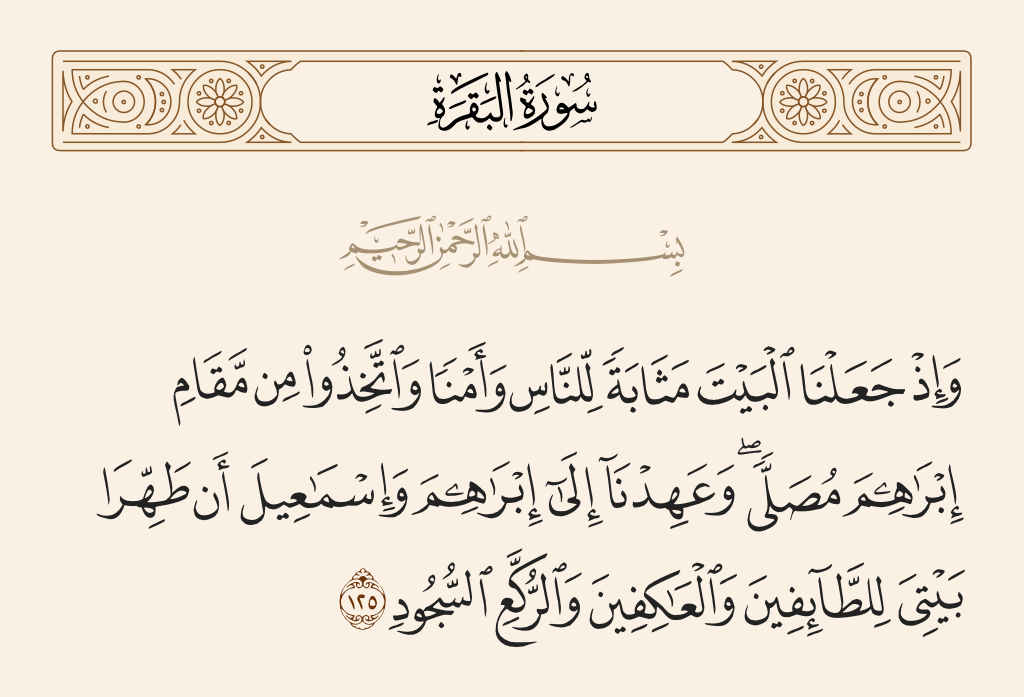 سُورَةُ البَقَرَةِ
بِسْمِ ٱللَّهِ ٱلرَّحْمَٰنِ ٱلرَّحِيمِ
وَإِذْ جَعَلْنَا ٱلْبَيْتَ مَثَابَةً لِّلنَّاسِ وَأَمْنًا وَٱتَّخِذُوا۟ مِن مَّقَامِ
إِبْرَٰهِۦمَ مُصَلًّى ۖ وَعَهِدْنَآ إِلَىٰٓ إِبْرَٰهِۦمَ وَإِسْمَٰعِيلَ أَن طَهِّرَا
بَيْتِىَ لِلطَّآئِفِينَ وَٱلْعَٰكِفِينَ وَٱلرُّكَّعِ ٱلسُّجُودِ ١٢٥